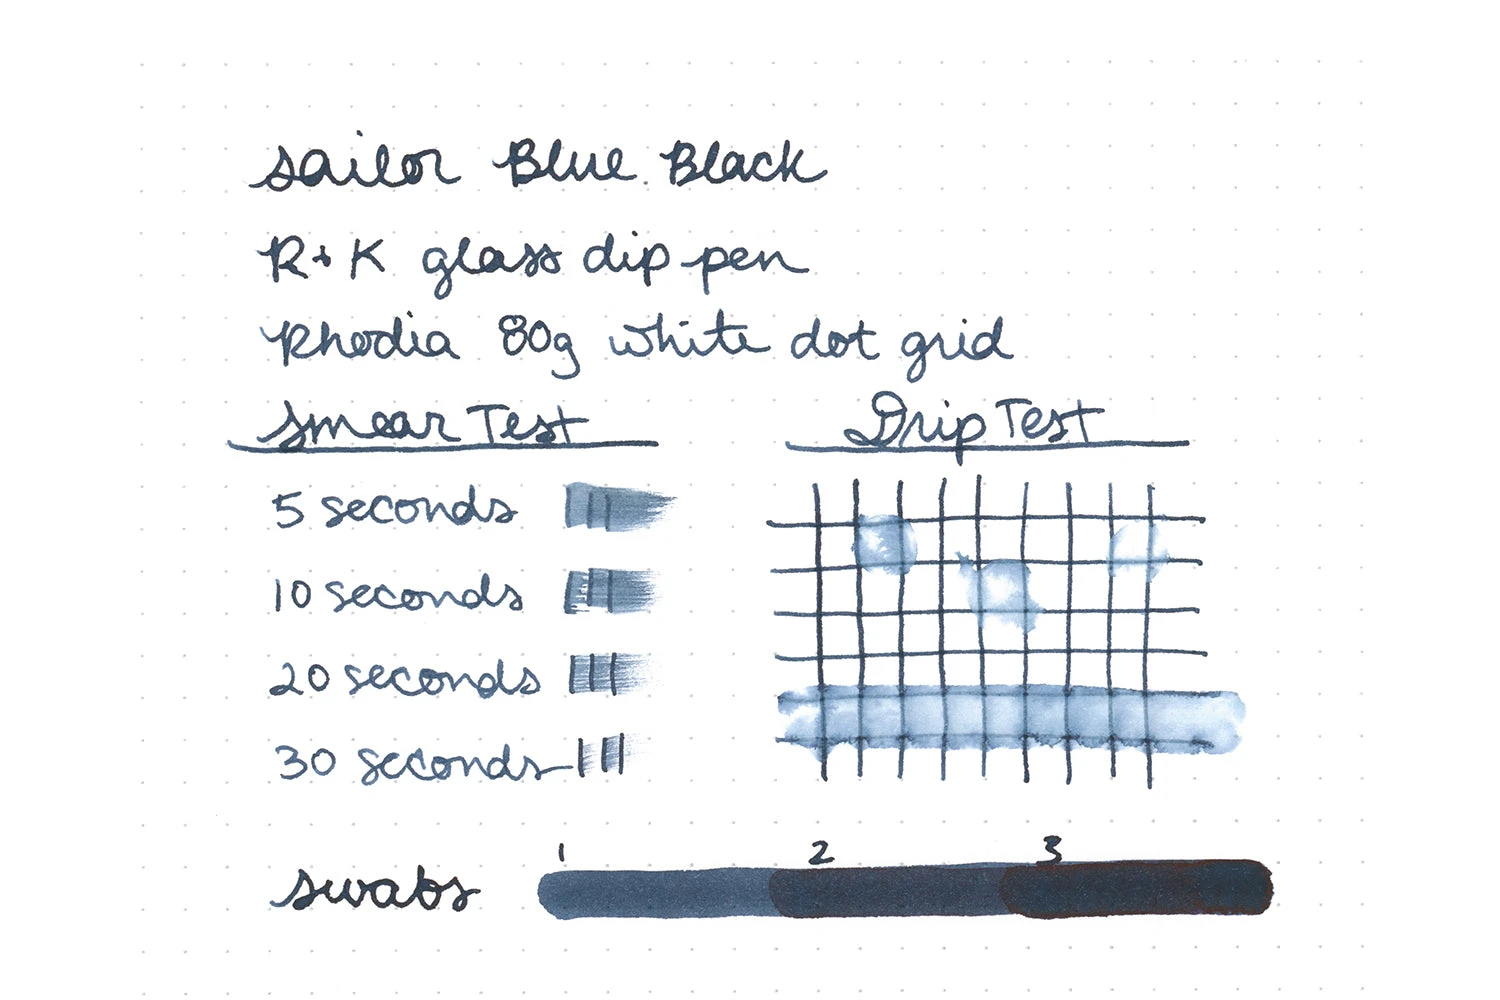 sailor Blue Black
R+K glass dip pen
Rhodia 80g white dot grid
Smear Test
5 seconds
10 seconds
20 seconds
30 seconds
Drip Test
swabs 1 2 3